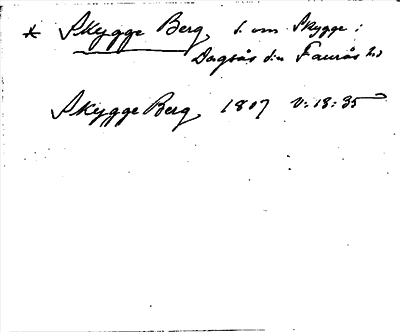 * Skygge Berg, s. om Skygge:
Dagsås sn Faurås hd
Skygge Berg 1807 V: 18: 35